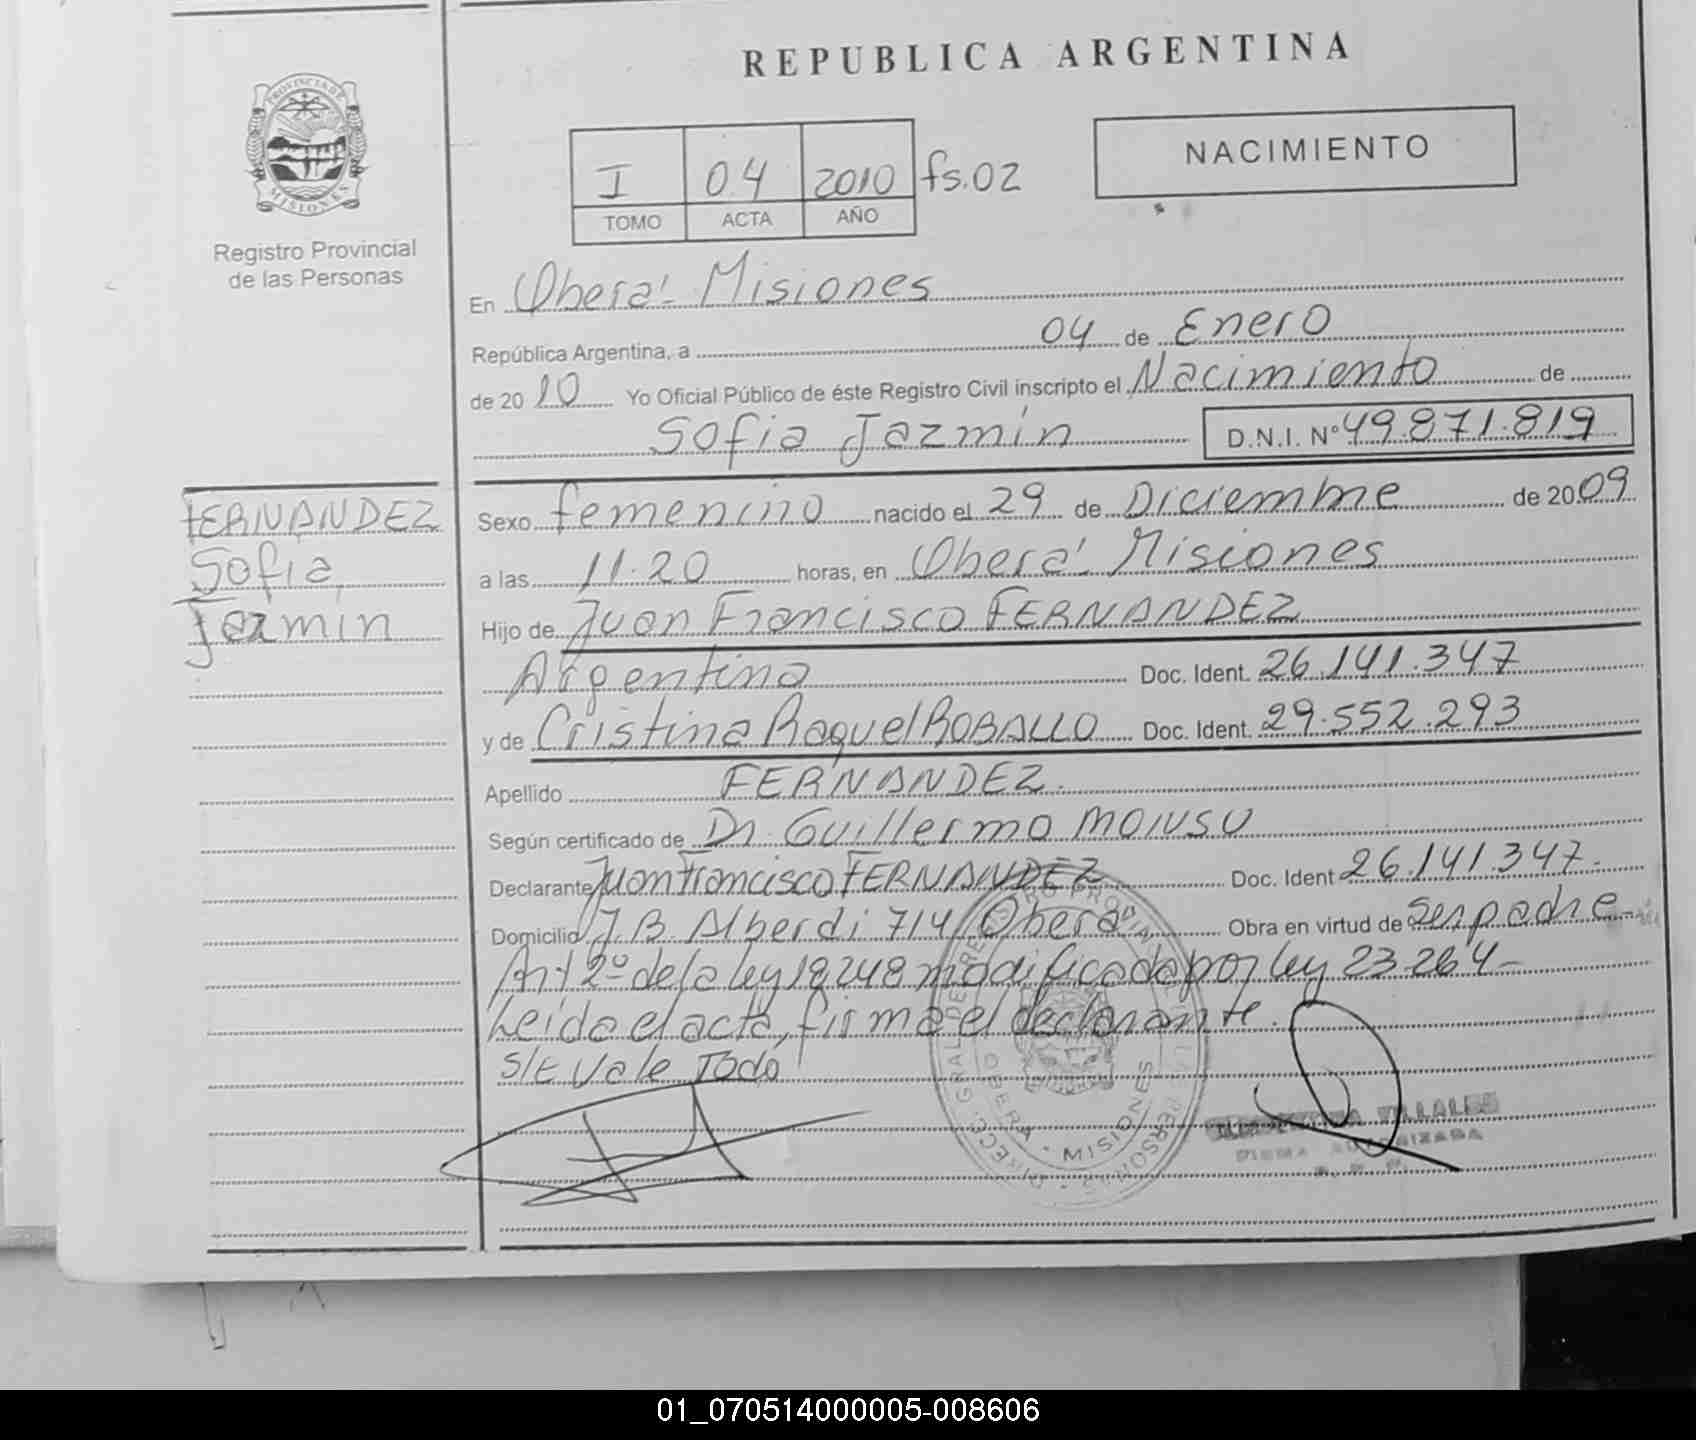 REPUBLICA ARGENTINA
PROVINCIA DE
MISIONES
Registro Provincial
de las Personas
I 04 2010 fs.02
TOMO ACTA AÑO
NACIMIENTO
En Oberá- Misiones
República Argentina, a 04 de Enero
de 20 10 Yo Oficial Público de éste Registro Civil inscripto el Nacimiento de
Sofia Jazmín D.N.I. Nº 49.871.819
FERNANDEZ
Sofia
Jazmin
Sexo femenino nacido el 29 de Diciembre de 2009
a las 11.20 horas, en Oberá- Misiones
Hijo de Juan Francisco FERNANDEZ
Argentina Doc. Ident. 26.141.347
y de Cristina Raquel ROBALLO Doc. Ident. 29.552.293
Apellido FERNANDEZ.
Según certificado de Dr. Guillermo
Declarante Juan Francisco FERNANDEZ Doc. Ident 26.141.347.-
Domicilio J.B. Alberdi 714 Oberá Obra en virtud de ser padre-
Art 2º de la ley 18248 modificada por ley 23.264-
Leida el acta, firma el declarante.
S/E Vale Todo
MISIONES
VILLALBA
01_070514000005-008606